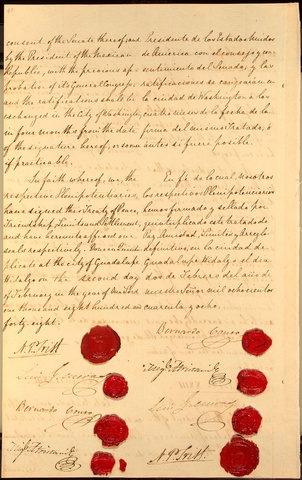 consent of the Senate thereof; and
by the President of the Mexican
Republic, with the previous ap-
probation of its General Congress:
and the ratifications shall be
exchanged in the City of Washington,
in four months from the date
of the signature hereof, or sooner
if practicable.
In faith whereof, we, the
respective Plenipotentiaries,
have signed this Treaty of Peace,
Friendship, Limits and Settlement,
and have hereunto affixed our
seals respectively. Done in Quintu-
plicate at the City of Guadalupe
Hidalgo on the second day
of February in the year of Our Lord
one thousand eight hundred and
forty eight.
N. P. Trist
Luis G. Cuevas
Bernardo Couto
Migl. Atristain
Presidente de los Estados Unidos
de America con el consejo y con-
sentimiento del Senado, y las
ratificaciones se canjearán en
la ciudad de Washington a los
cuatro meses de la fecha de la
firma del mismo Tratado, ó
antes si fuere posible.
En fé de lo cual, nosotros
los respectivos Plenipotenciarios
hemos firmado y sellado por
quintuplicado este tratado de
Paz, Amistad, Limites y Arreglo
definitivo, en la ciudad de
Guadalupe Hidalgo el dia
dos de Febrero del año de
nuestro Señor mil ochocientos
cuarenta y ocho.
Bernardo Couto
Migl. Atristain
Luis G. Cuevas
N. P. Trist